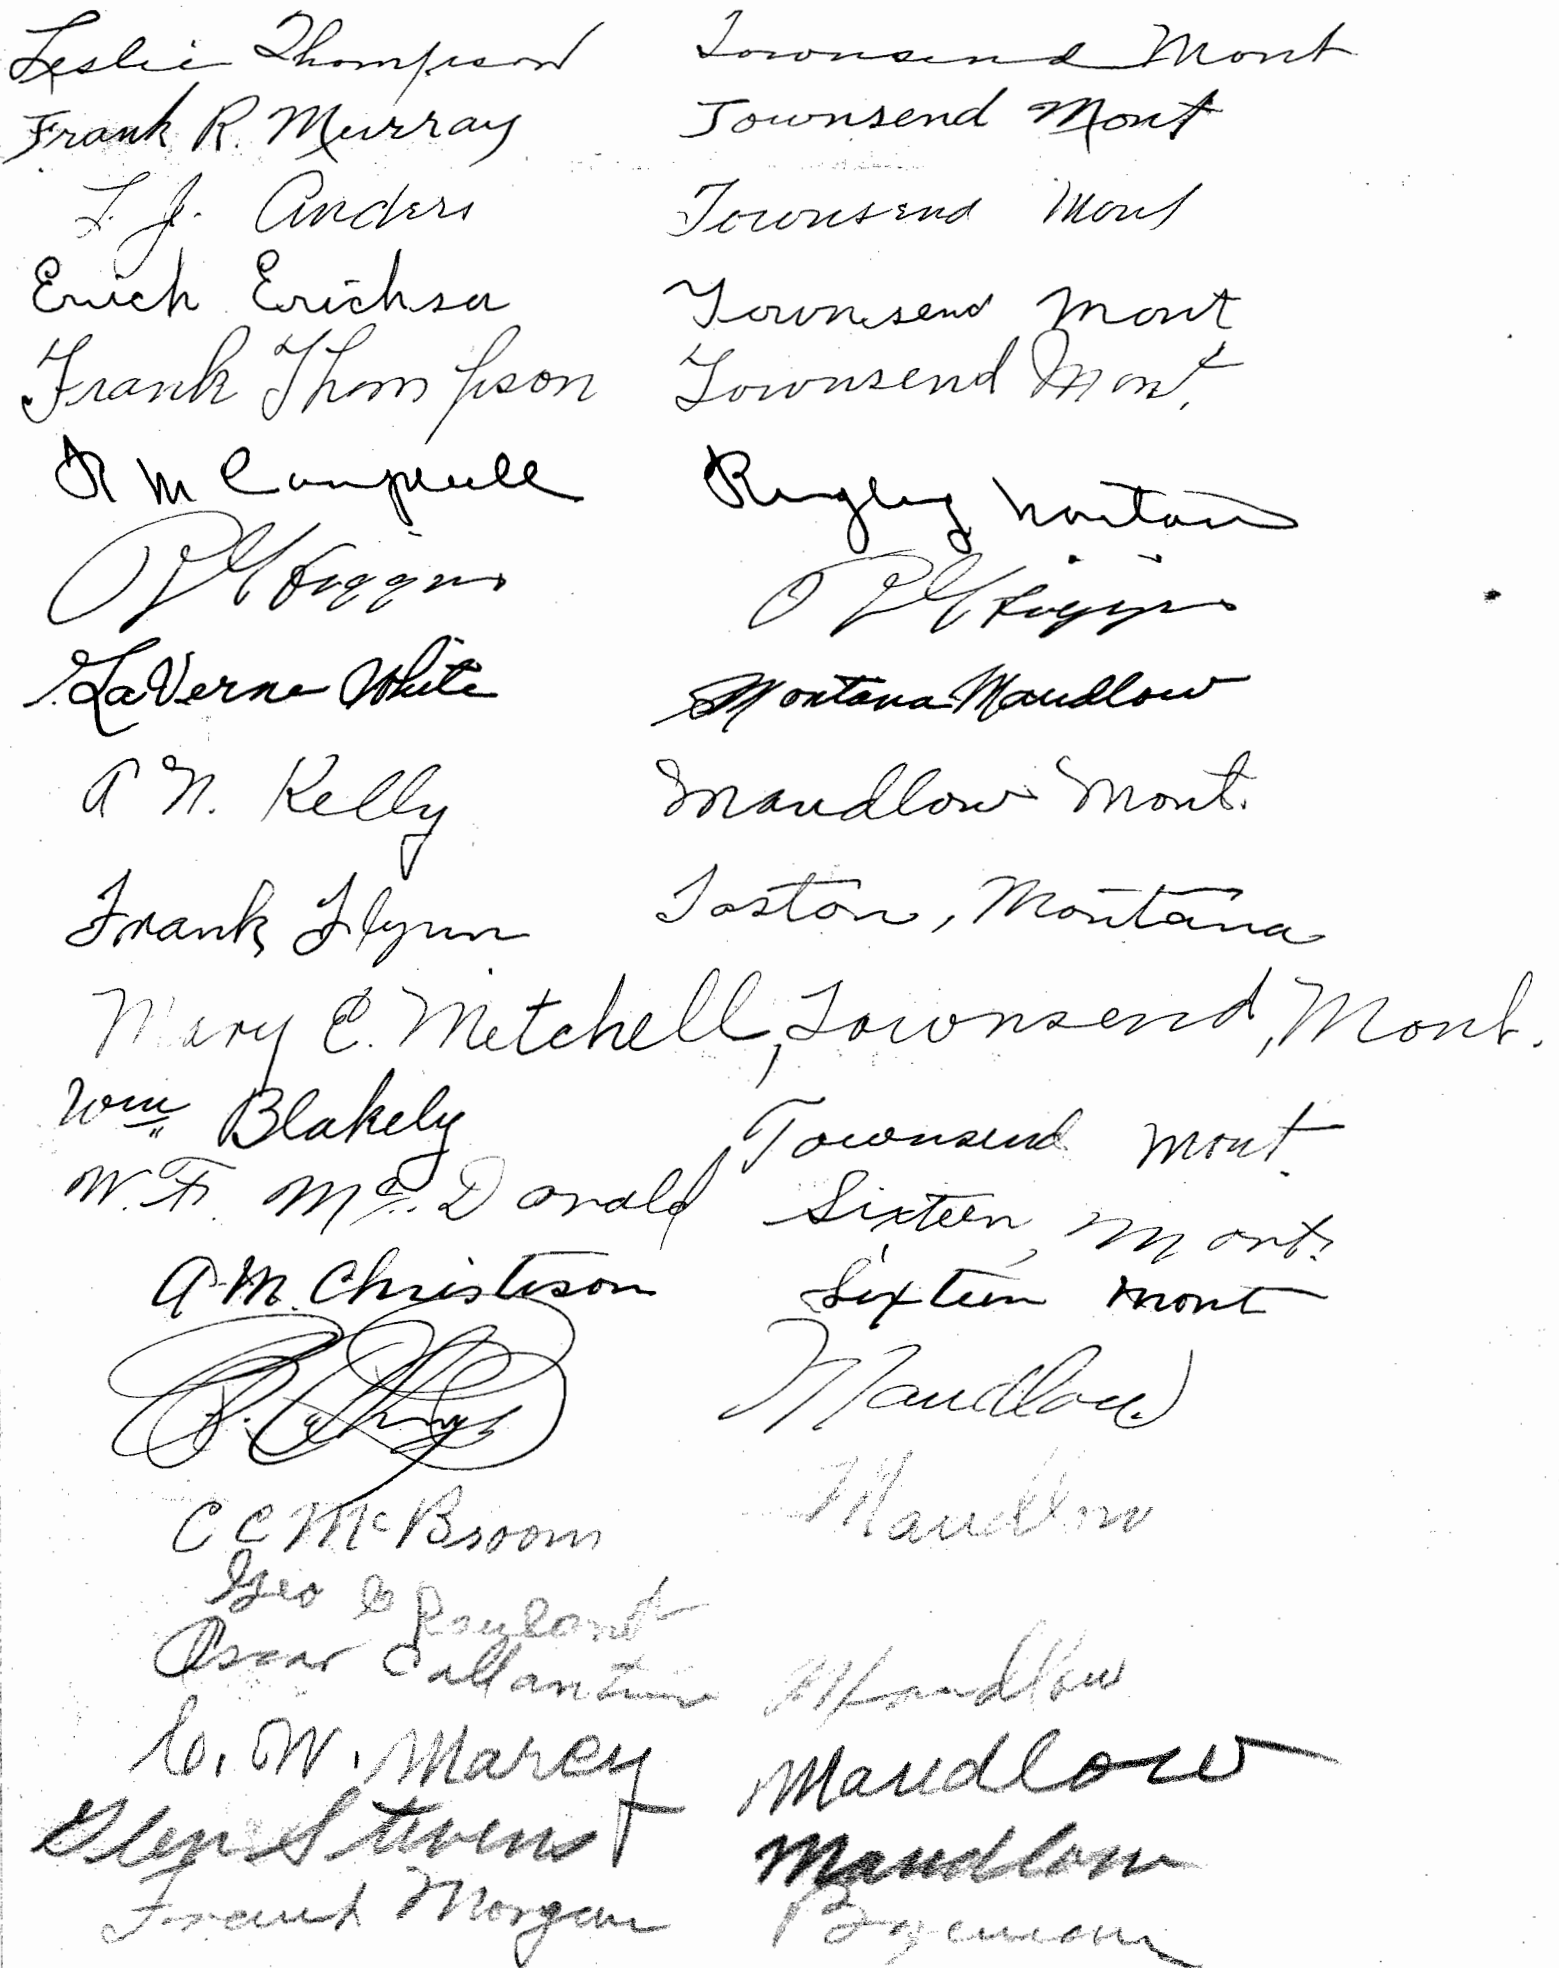 Leslie Thompson Townsend Mont
Frank R. Murray Townsend Mont
L. J. Anders Townsend Mont
Erick Erickson Townsend Mont
Frank Thompson Townsend Mont.
R M Campbell Ringling Montana
Higgins Higgins
LaVerne White Montana Maudlow
A N. Kelly Maudlow Mont.
Frank Flynn Toston, Montana
Mary E. Mitchell, Townsend, Mont.
Wm Blakely Townsend Mont.
W. F. McDonald Sixteen, Mont.
A. M. Christison Sixteen Mont
Maudlow
C C McBroom Maudlow
Geo
Oscar Callantine Maudlow
C. W. Marcy Maudlow
Glen Stevens Maudlow
Frank Morgan Bozeman